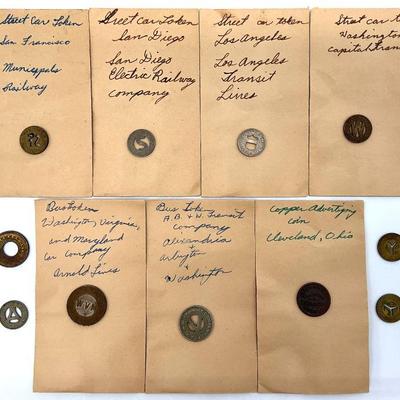 Street Car Token
San Francisco
Municipal
Railway
Street car token
San Diego
San Diego
Electric Railway
Company
Street car token
Los Angeles
Los Angeles
Transit
Lines
Street car t
Washington
capital trans
Bus token
Washington, Virginia,
and Maryland
Car company
Arnold Lines
Bus Token
A.B. & W. Transit
company
Alexandria +
Arlington
+
Washington
Copper Advertising
coin
Cleveland, Ohio